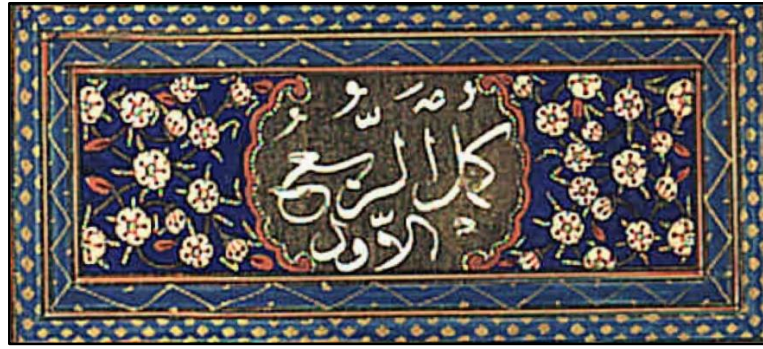 كمل الرّبع
الاوّل